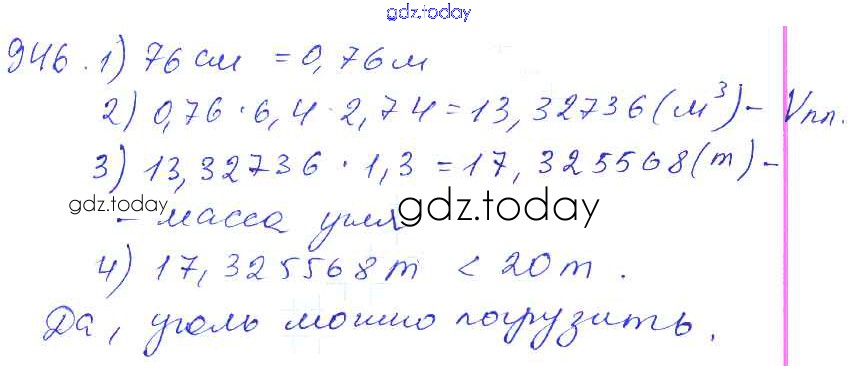 gdz.today
946. 1) 76 см = 0,76 м
2) 0,76 · 6,4 · 2,74 = 13,32736 (м³) – Vпл.
3) 13,32736 · 1,3 = 17,325568 (т) –
gdz.today
– масса угля
gdz.today
4) 17,325568 т < 20 т.
Да, уголь можно погрузить.